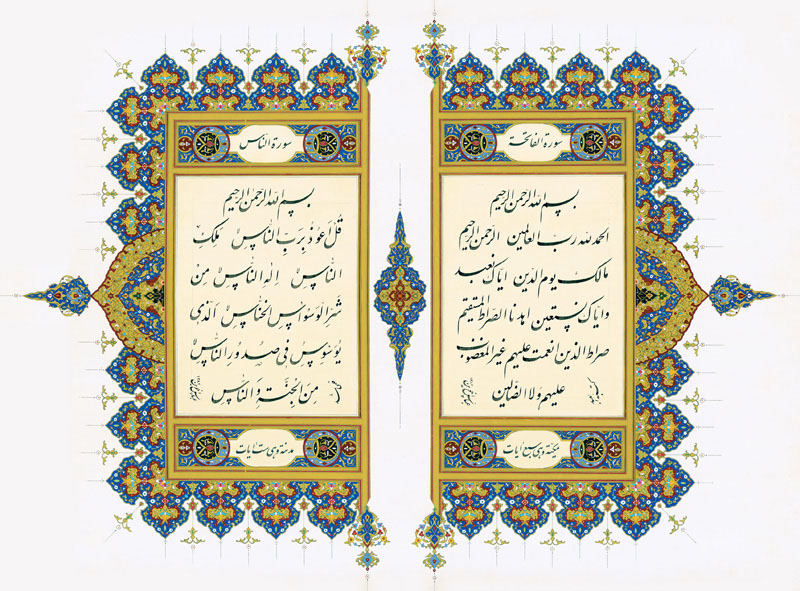 سورة الفاتحة
بسم الله الرحمن الرحیم
الحمد لله رب العالمین الرحمن الرحیم
مالک یوم الدین ایاک نعبد
وایاک نستعین اهدنا الصراط المستقیم
صراط الذین انعمت علیهم غیر المغضوب
علیهم ولا الضالین
مکیة وهی سبع آیات
سورة الناس
بسم الله الرحمن الرحیم
قُل اَعوذُ بِرَبِّ الناسِ مَلِکِ
الناسِ اِلٰهِ الناسِ مِن
شَرِّ الوَسواسِ الخَنّاسِ اَلَّذی
یُوَسوِسُ فی صُدورِ الناسِ
مِنَ الجِنَّةِ وَ الناسِ
مدنیة وهی ست آیات